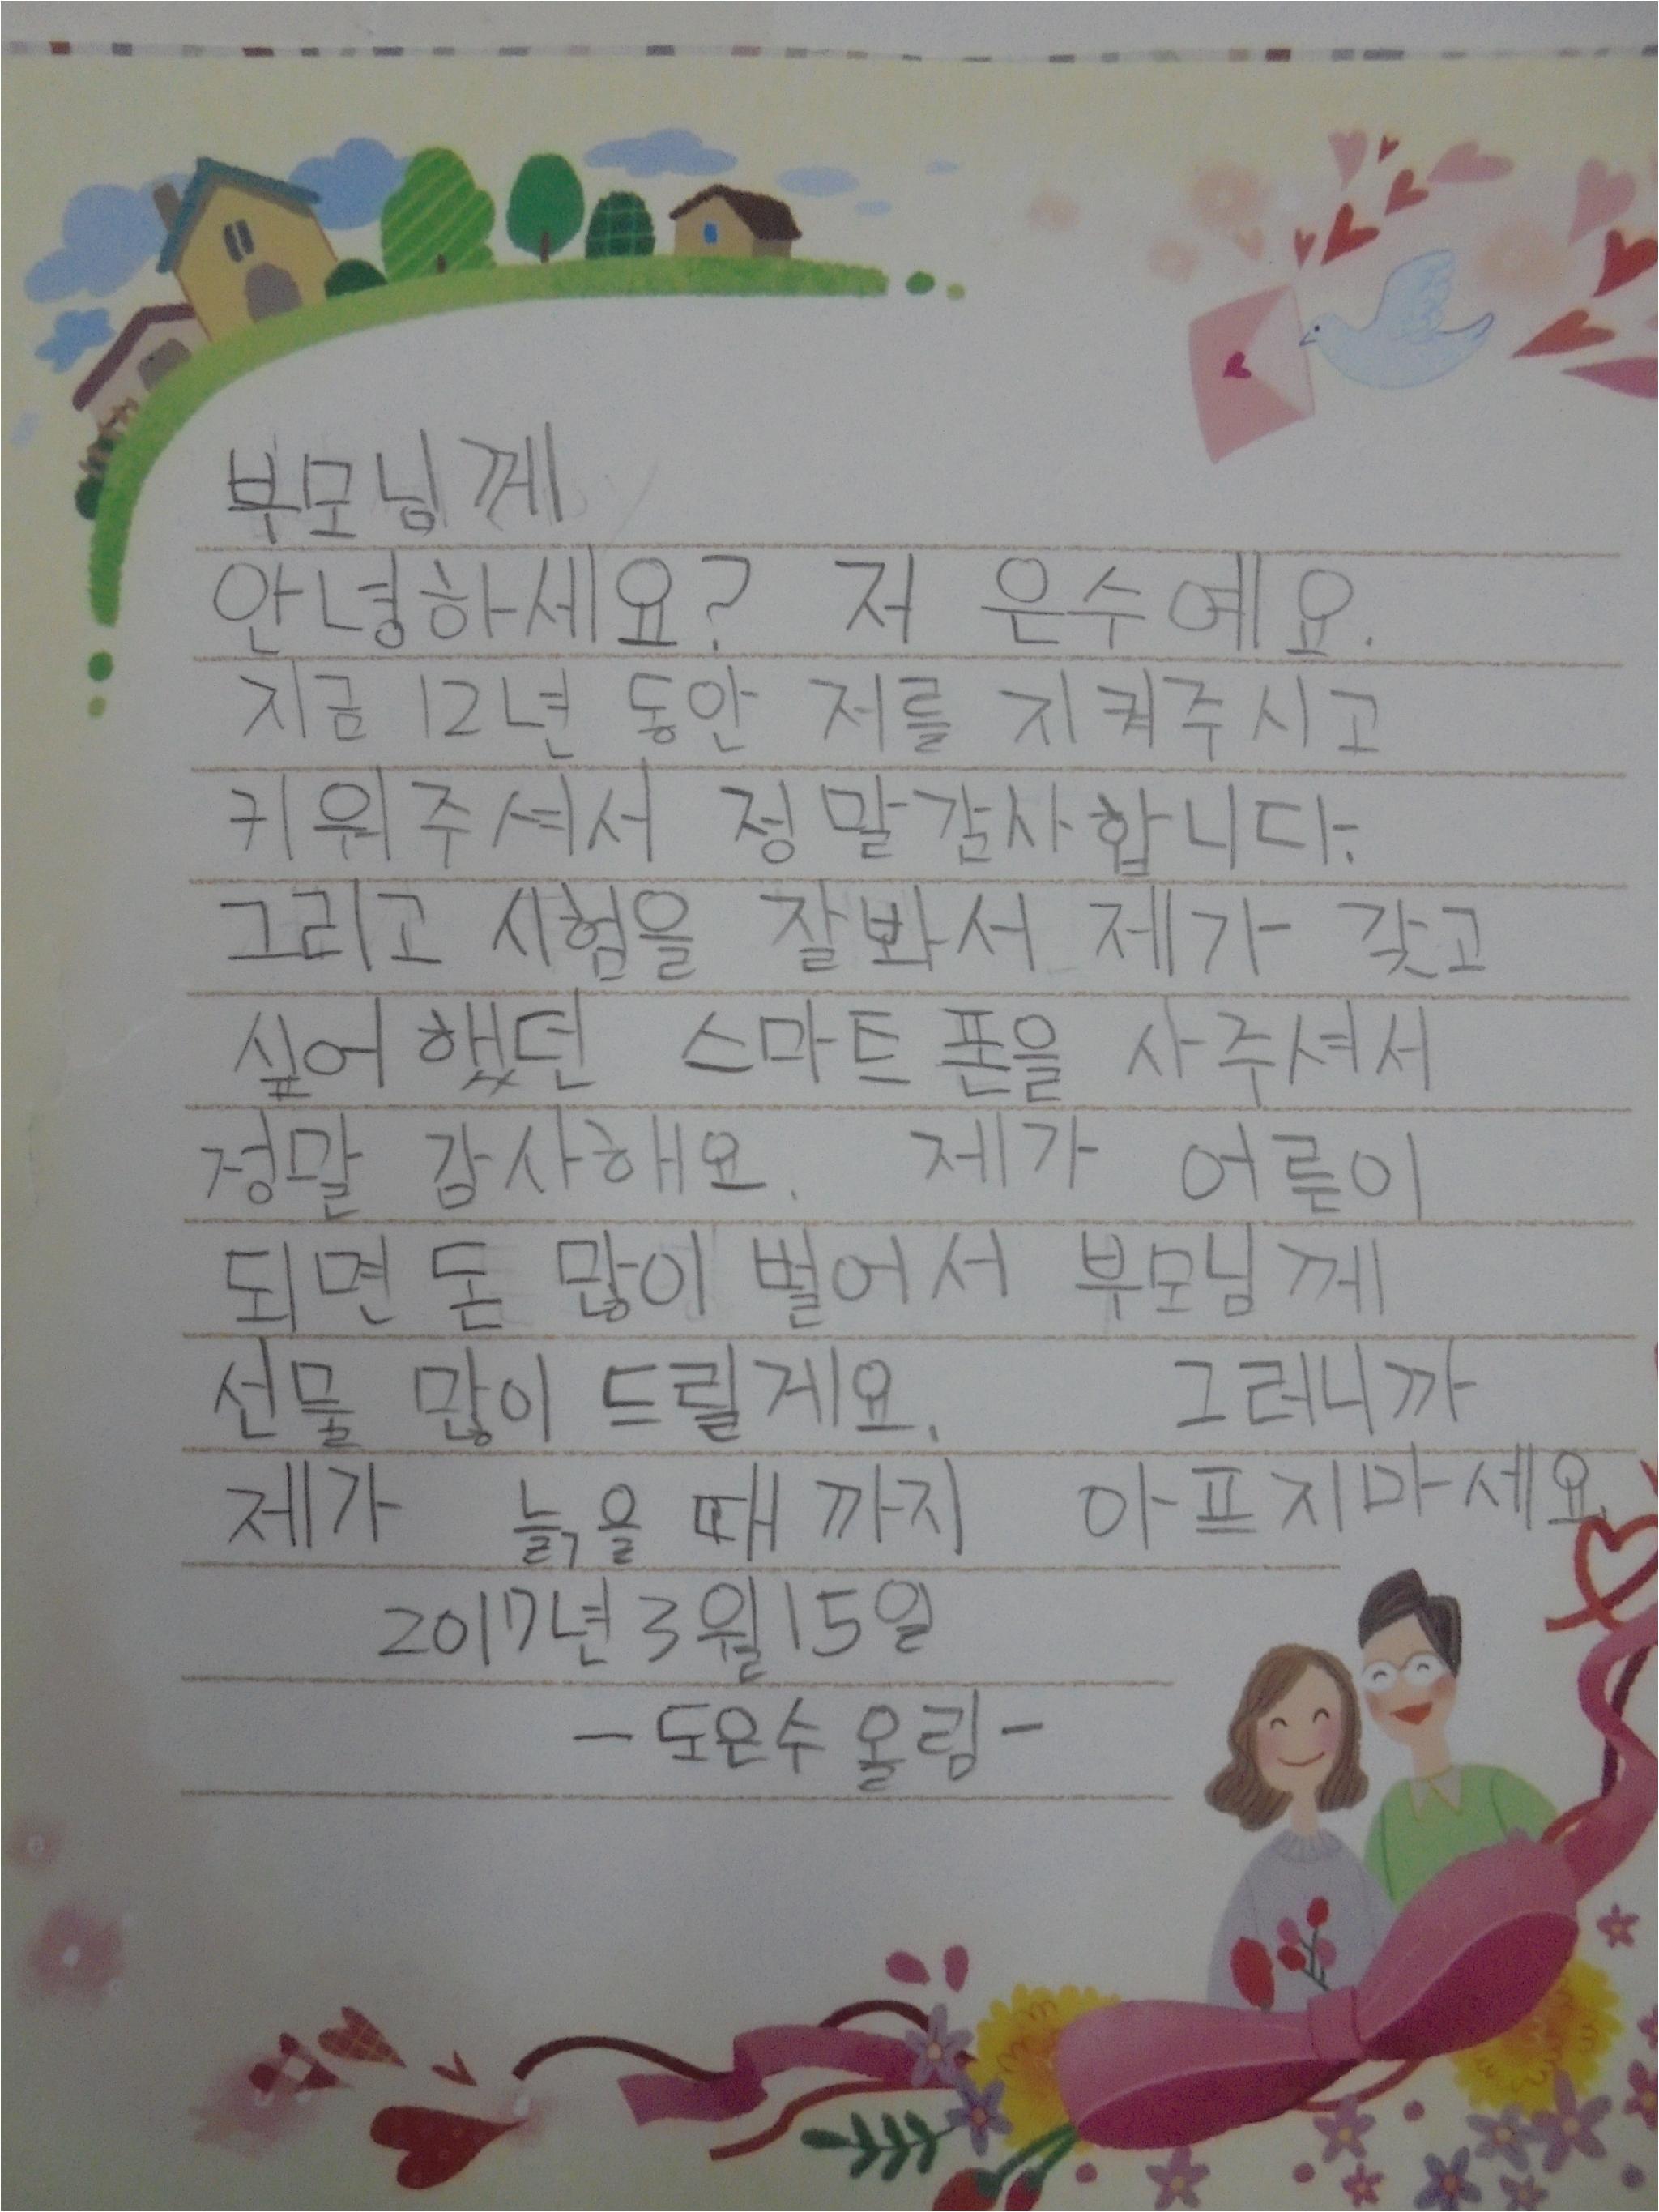 부모님께
안녕하세요? 저 은수예요.
지금 12년 동안 저를 지켜주시고
키워주셔서 정말감사합니다.
그리고 시험을 잘봐서 제가 갖고
싶어했던 스마트폰을 사주셔서
정말 감사해요. 제가 어른이
되면 돈 많이 벌어서 부모님께
선물 많이 드릴게요. 그러니까
제가 늙을 때까지 아프지마세요.
2017년 3월 15일
-도은수 올림-